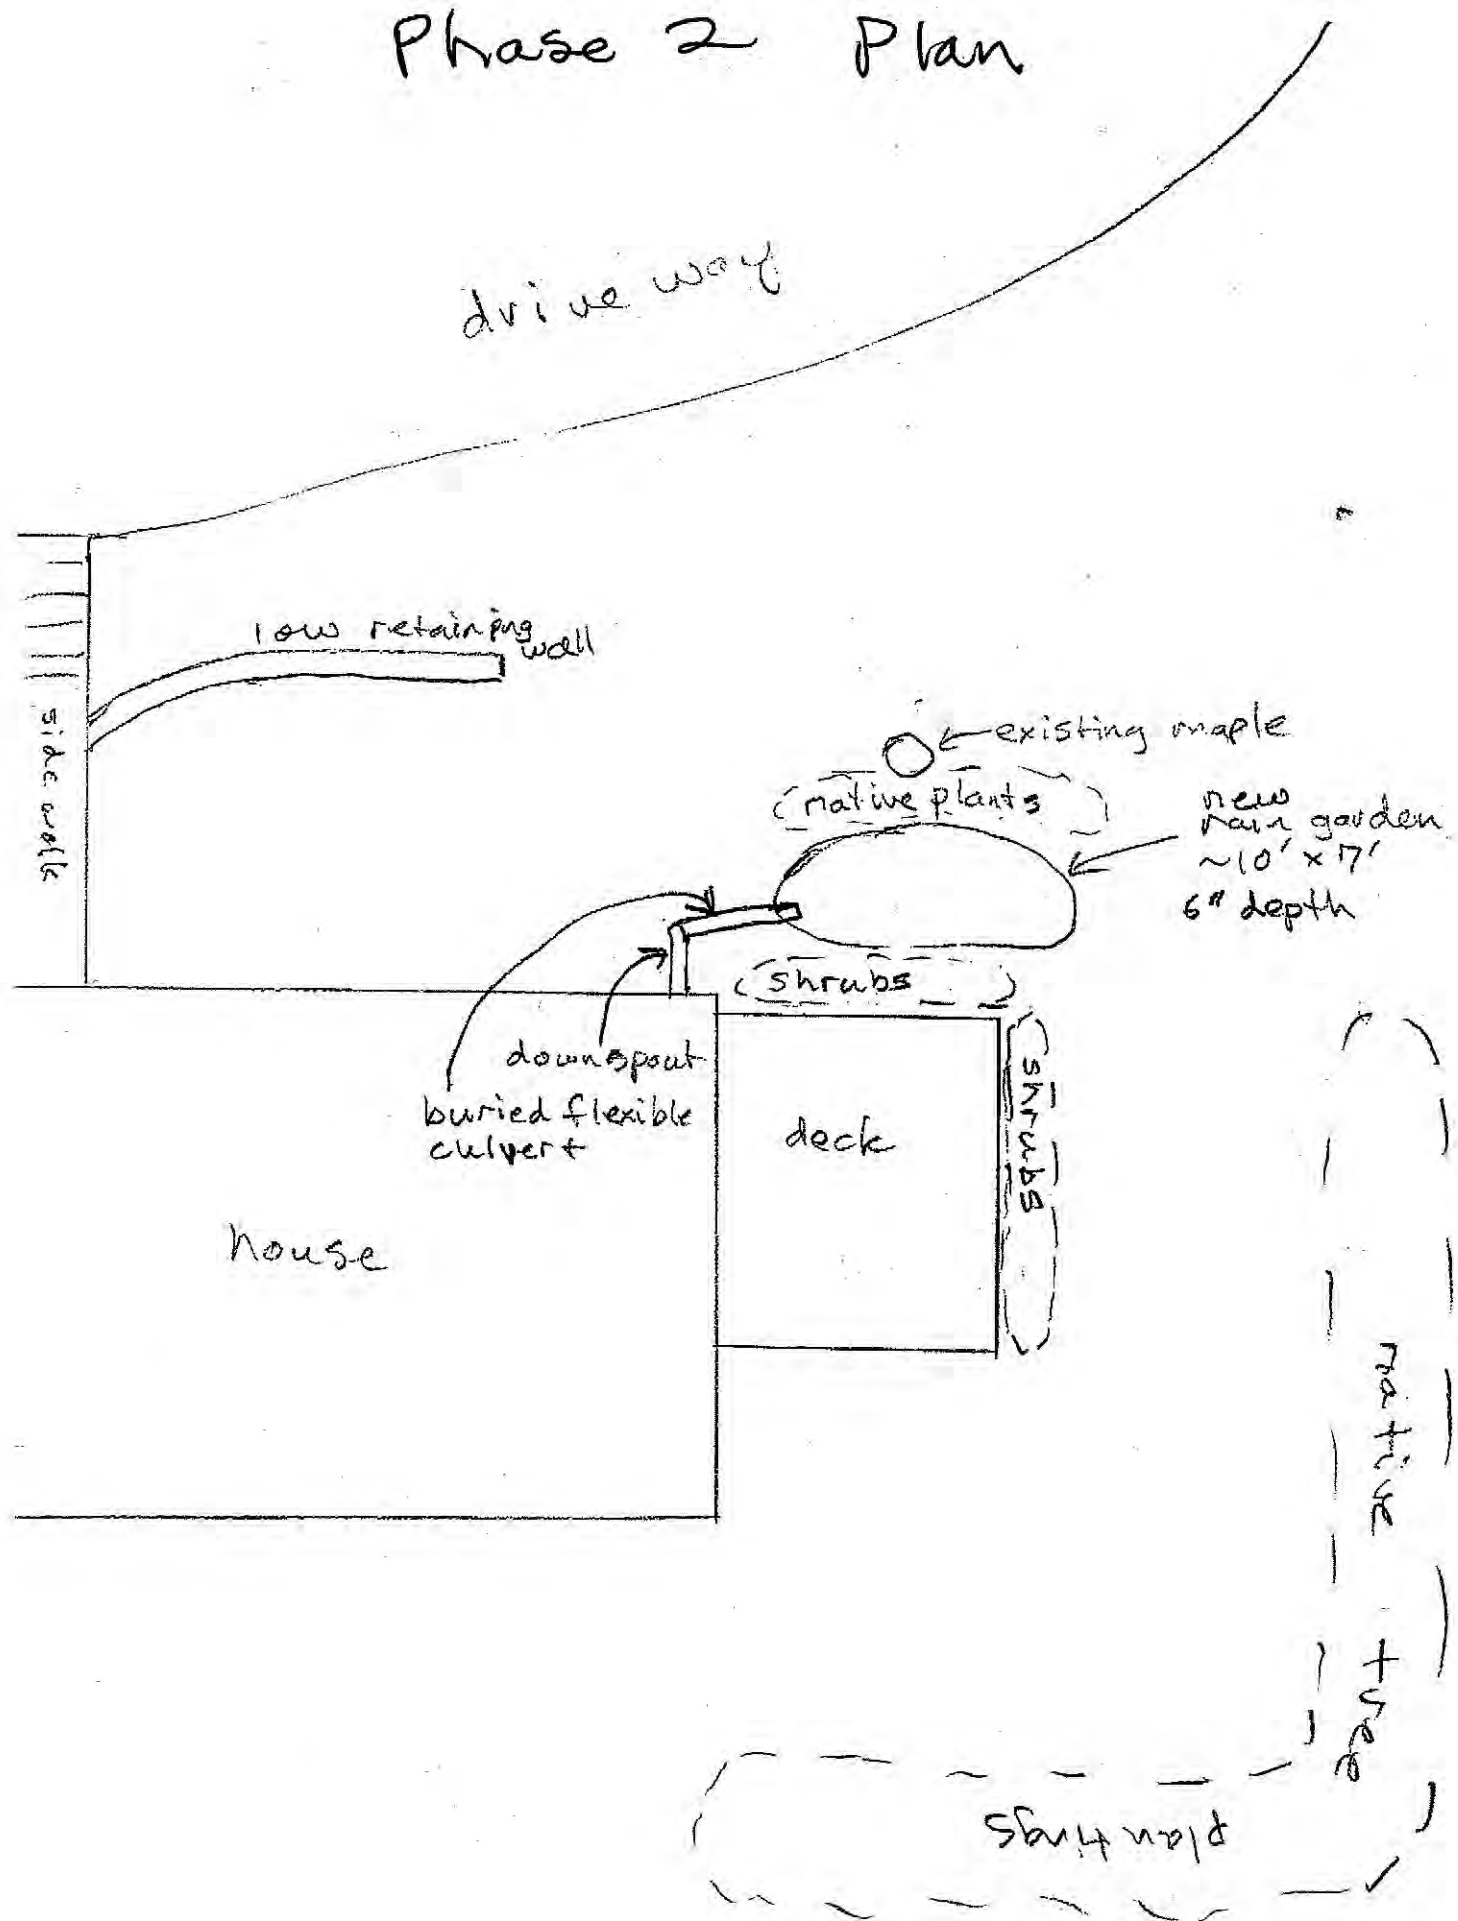 Phase 2 Plan
driveway
low retaining
wall
sidewalk
existing maple
native plants
new
rain garden
~10' x 7'
6" depth
shrubs
downspout
buried flexible
culvert
deck
shrubs
house
native tree
plantings